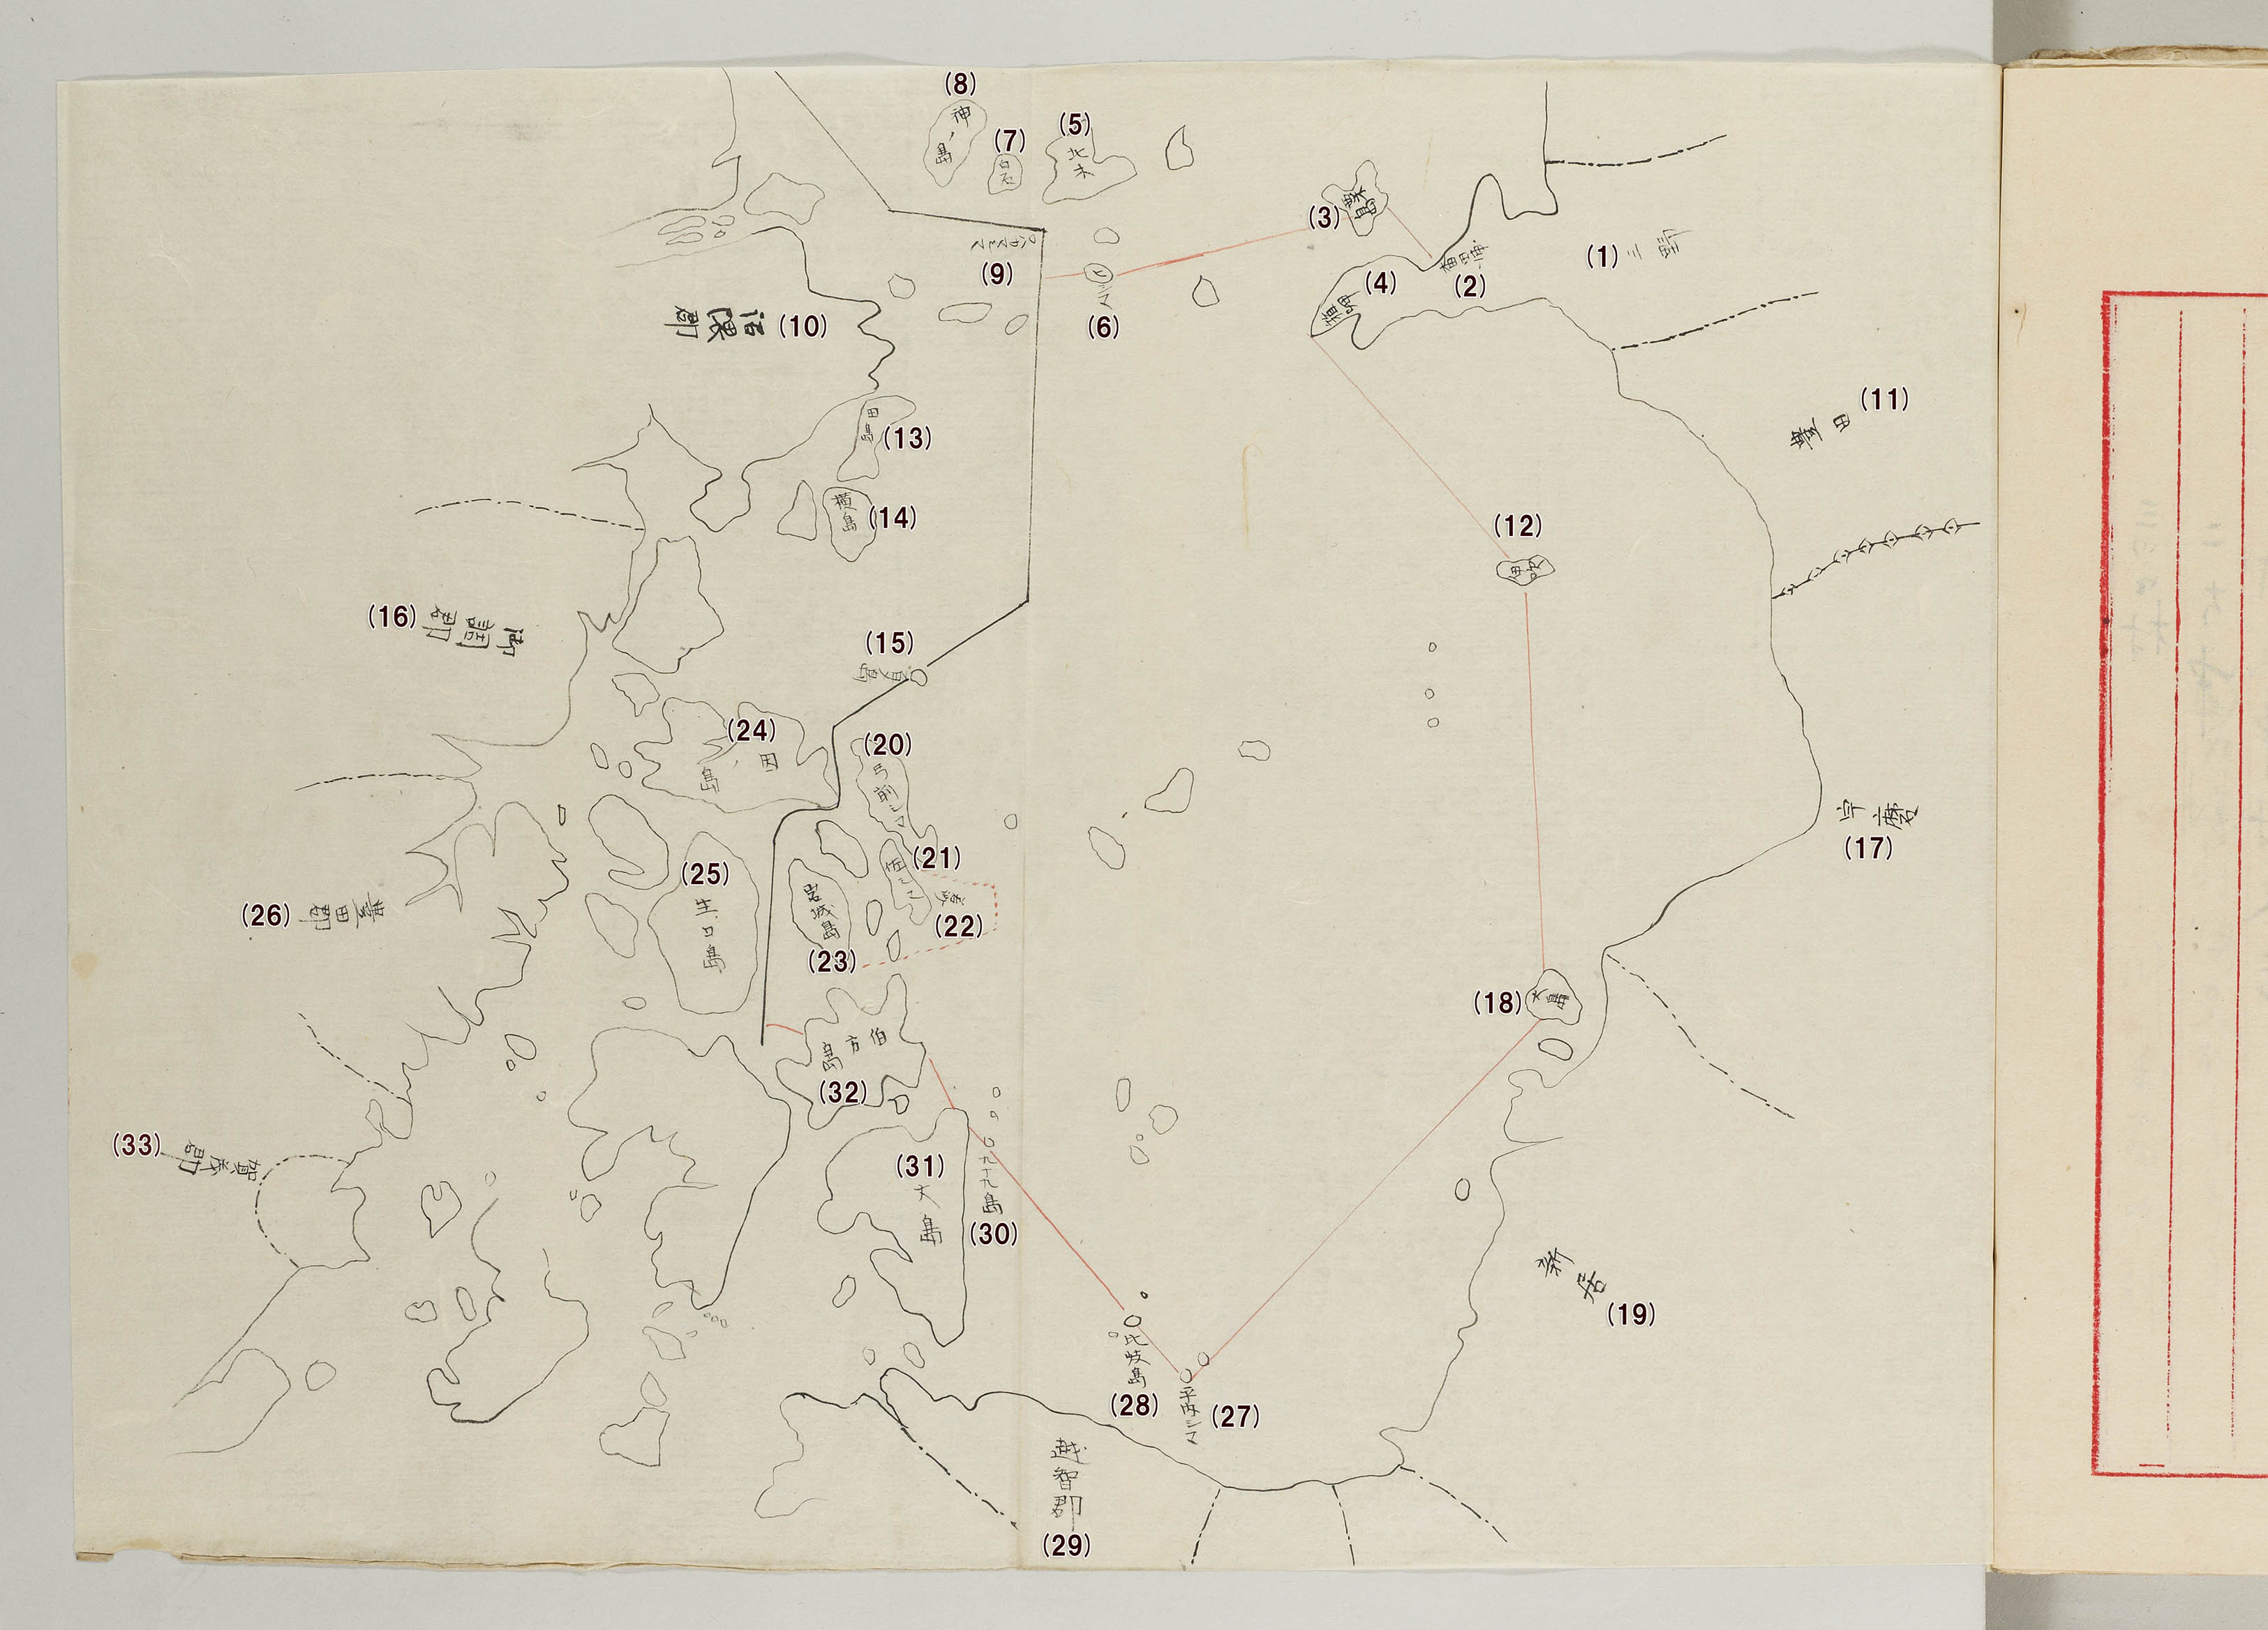 (1) 三野
(2)
(3) 粟島
(4) 箱岬
(5) 北木
(6) ヒシマ
(7) 白石
(8) 神ノ島
(9)
(10) 沼隈郡
(11) 豊田
(12) 伊吹
(13) 田島
(14) 横島
(15)
(16) 御調郡
(17) 宇摩
(18) 大島
(19) 新居
(20) 弓削シマ
(21) 佐シマ
(22)
(23) 岩城島
(24) 因ノ島
(25) 生口島
(26) 豊田郡
(27) 平内シマ
(28) 比岐島
(29) 越智郡
(30) 九十九島
(31) 大島
(32) 伯方島
(33) 賀茂郡